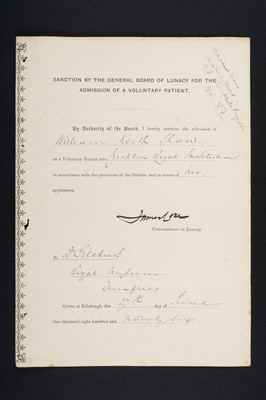 SANCTION BY THE GENERAL BOARD OF LUNACY FOR THE
ADMISSION OF A VOLUNTARY PATIENT.
By Authority of the Board, I hereby sanction the admission of
William Keith Shaw
as a Voluntary Patient into Crichton Royal Institution
in accordance with the provisions of the Statute, and in terms of his
application.
Commissioner in Lunacy.
To
Royal Asylum
Dumfries
Given at Edinburgh, this 27th day of June
One thousand eight hundred and ninety six.